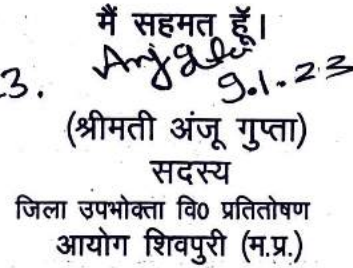 मैं सहमत हूँ।
3.
9.1.23
(श्रीमती अंजू गुप्ता)
सदस्य
जिला उपभोक्ता वि0 प्रतितोषण
आयोग शिवपुरी (म.प्र.)